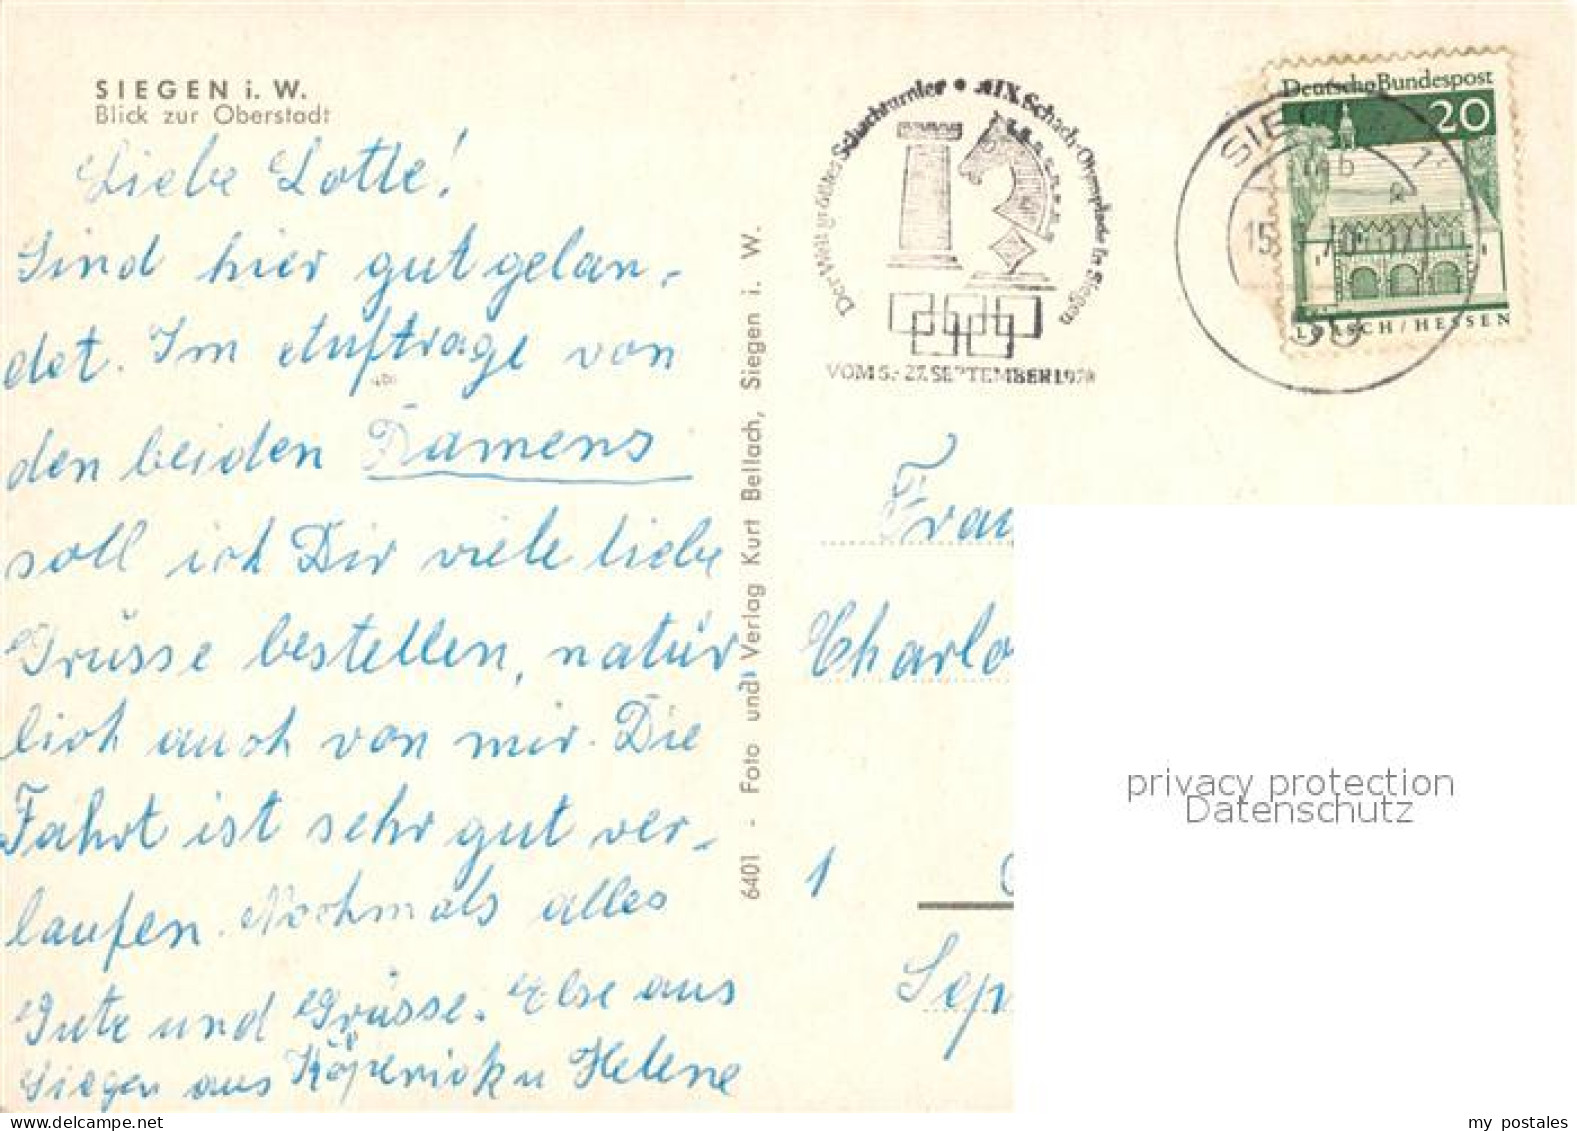 SIEGEN i. W.
Blick zur Oberstadt
Liebe Lotte!
Sind hier gut gelan-
det. Im Auftrage von
den beiden Damens
soll ich Dir viele liebe
Grüsse bestellen, natür
lich auch von mir. Die
Fahrt ist sehr gut ver-
laufen. Nochmals alles
Gute und Grüsse. Else aus
Siegen aus Köpenick u Helene
6401 - Foto und Verlag Kurt Bellach, Siegen i. W.
Der Welt größtes Schachturnier • XIX. Schach-Olympiade in Siegen
VOM 5.-27. SEPTEMBER 1970
SIE
15
70
Deutsche Bundespost
20
LORSCH/HESSEN
Frau
Charlo
1
Sep
privacy protection
Datenschutz
my postales